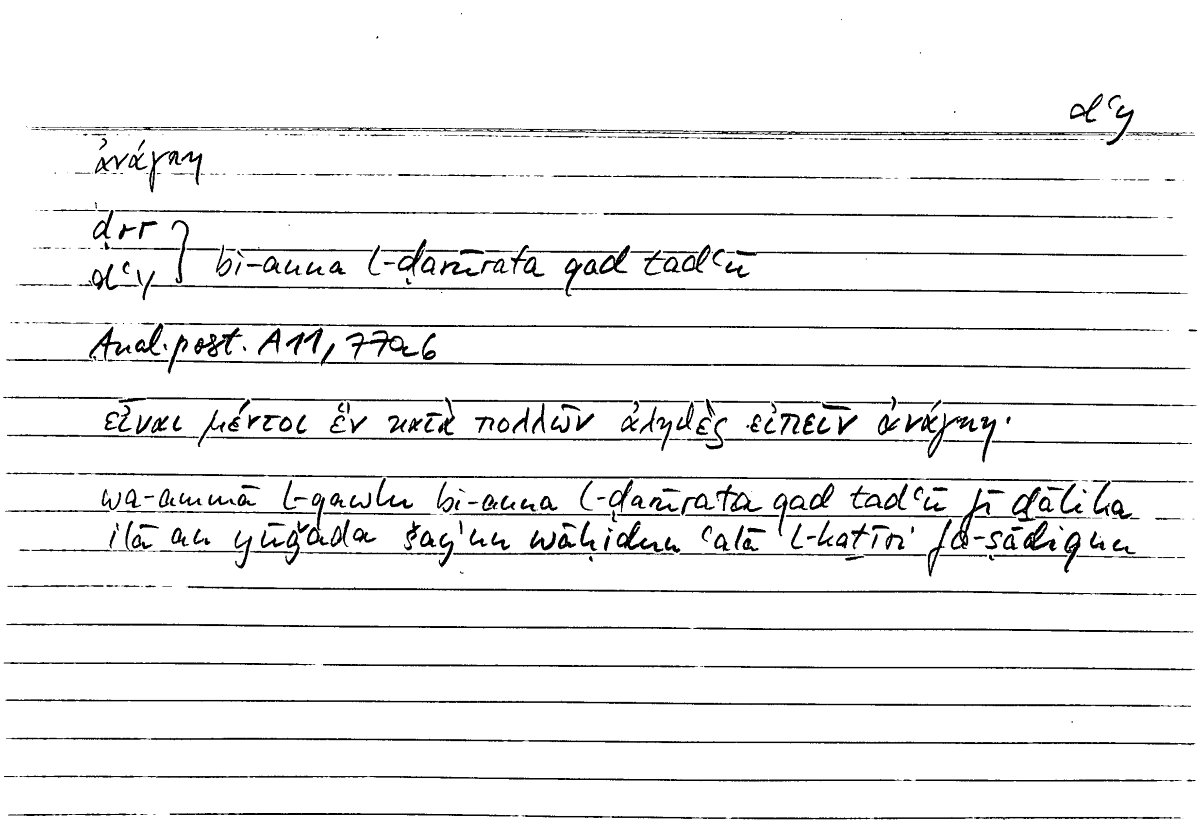 dʿy
ἀνάγκη
ḍrr
dʿy } bi-anna l-ḍarūrata qad tadʿū
Anal. post. A 11, 77a6
εἶναι μέντοι ἓν κατὰ πολλῶν ἀληθὲς εἰπεῖν ἀνάγκη·
wa-ammā l-qawlu bi-anna l-ḍarūrata qad tadʿū fī ḏālika
ilā an yūǧada šayʾun wāḥidun ʿalā l-kaṯīri fa-ṣādiqun